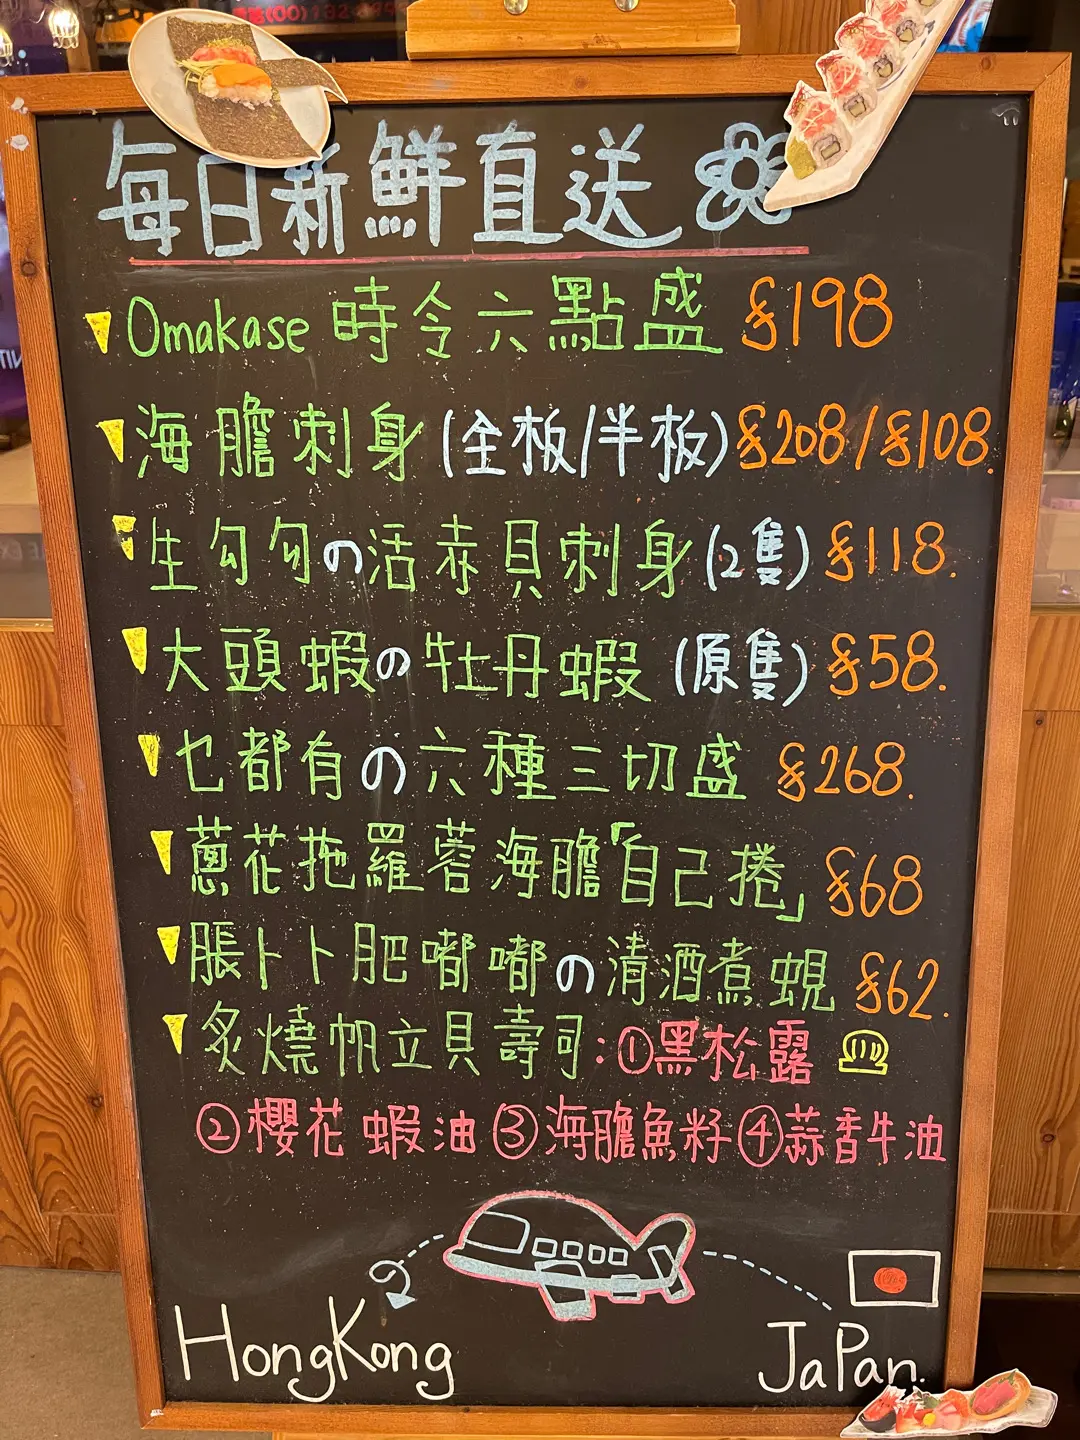 每日新鮮直送
Omakase 時令六點盛 $198
海膽刺身(全板/半板)$208/$108.
生勾勾の活赤貝刺身(2隻)$118.
大頭蝦の牡丹蝦(原隻)$58.
乜都有の六種三切盛 $268.
蔥花拖羅蓉海膽「自己捲」$68
脹卜卜肥嘟嘟の清酒煮蜆 $62.
炙燒帆立貝壽司:①黑松露
②櫻花蝦油③海膽魚籽④蒜香牛油
HongKong
JaPan.